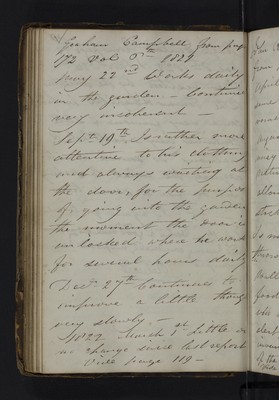 Graham Campbell from page
172 Vol 5th 1829
June 22nd Works daily
in the garden — Continues
very incoherent —
Sept 19th Is rather more
attentive to his clothing
and always waiting at
the door, for the purpose
of going into the garden
the moment the door is
unlocked where he works
for several hours daily
Decr 27th Continues to
improve a little though
very slowly —
March 1st Little or
no change since last report
Vide page 119 —